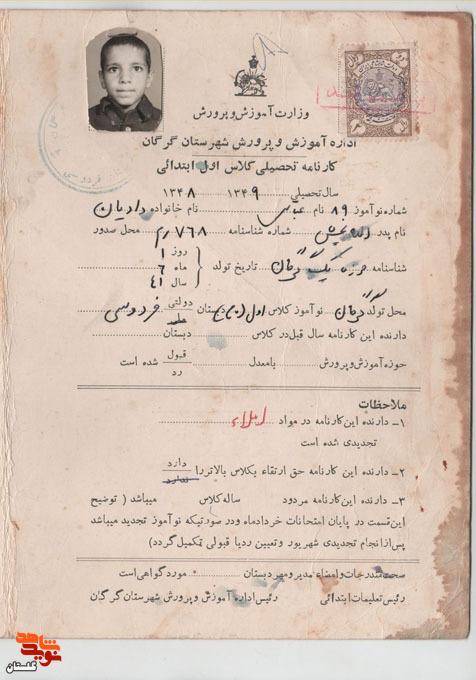 وزارت آموزش و پرورش
اداره آموزش و پرورش شهرستان گرگان
کارنامه تحصیلی کلاس اول ابتدائی
سال تحصیلی ۱۳۴۹ ۱۳۴۸
شماره نوآموز ۸۹ نام عباس نام خانواده دادیان
نام پدر شماره شناسنامه ۷۶۸ محل صدور
شناسنامه حوزه یک گرگان تاریخ تولد روز ۱ ماه ۶ سال ۴۱
محل تولد گرگان نوآموز کلاس اول دبستان دولتی ملی فردوسی
دارنده این کارنامه سال قبل در کلاس دبستان
حوزه آموزش و پرورش با معدل قبول رد شده است
ملاحظات
۱- دارنده این کارنامه در مواد املاء
تجدیدی شده است
۲- دارنده این کارنامه حق ارتقاء بکلاس بالاتر را دارد ندارد
۳- دارنده این کارنامه مردود ساله کلاس میباشد ( توضیح
این قسمت در پایان امتحانات خردادماه ودر صورتیکه نوآموز تجدید میباشد
پس از انجام تجدیدی شهریور و تعیین رد یا قبولی تکمیل گردد)
صحت مندرجات و امضاء مدیر و مهر دبستان مورد گواهی است
رئیس تعلیمات ابتدائی رئیس اداره آموزش و پرورش شهرستان گرگان
نوید شاهد
گلستان